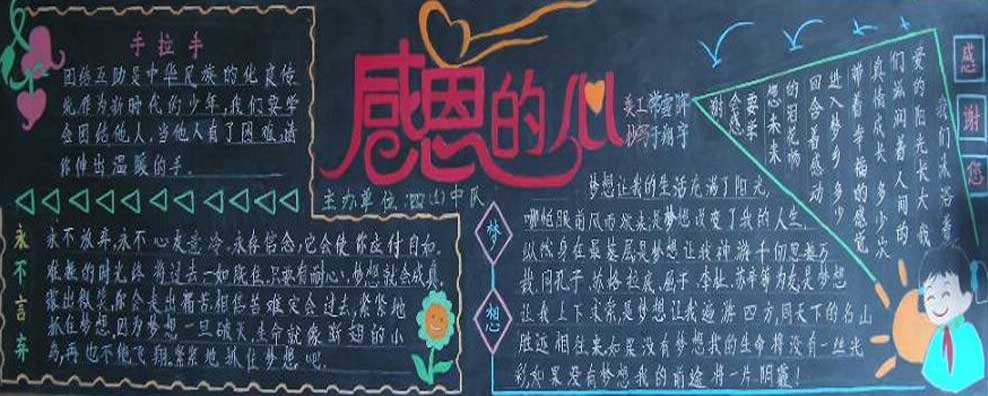 手拉手
团结互助是中华民族的优良传
统作为新时代的少年,我们要学
会团结他人,当他人有了困难,请
你伸出温暖的手。
感恩的心
主办单位:四(1)中队
美工
感谢您
我们沐浴着
爱的阳光长大 我
们滋润着人间的
真情成长 多少次
带着幸福的感觉
进入梦乡 多少
回含着感动
的泪花畅
想未来
要学
会感
谢
永不言弃
永不放弃,永不心灰意冷。永存信念,它会使你应付自如。
难熬的时光终将过去一如既往,只要有耐心,梦想就会成真。
露出微笑,你会走出痛苦,相信苦难定会过去,紧紧地
抓住梦想,因为梦想一旦破灭,生命就像断翅的小
鸟,再也不能飞翔,紧紧地抓住梦想吧。
梦想
梦想让我的生活充满了阳光,
哪怕眼前风雨袭来是梦想改变了我的人生,
纵然身在最基层是梦想让我神游千仞思接万
我同孔子,苏格拉底,屈子,李杜,苏辛等为友是梦想
让我上下求索,是梦想让我遨游四方,同天下的名山
胜迹相往来。如果没有梦想我的生命将没有一丝光
彩,如果没有梦想我的前途将一片阴霾!